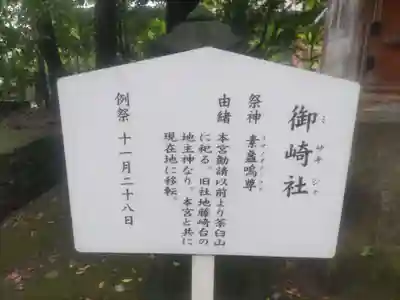 御崎社
ミサキシャ
祭神 素盞嗚尊
スサノオノミコト
由緒 本宮勧請以前より茶臼山
に祀る。旧社地藤崎台の
地主神なり。本宮と共に
現在地に移転。
例祭 十一月二十八日